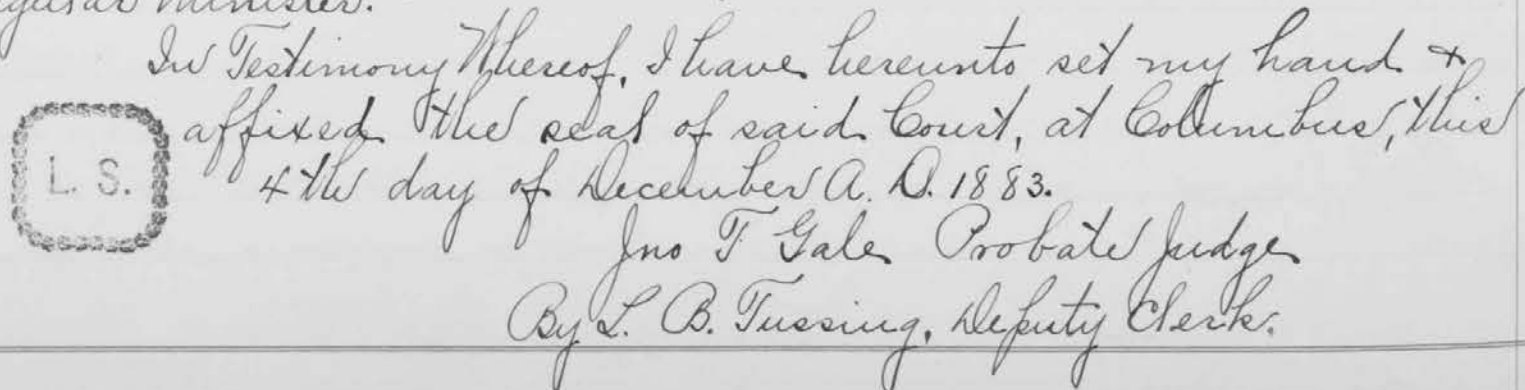 minister.
In Testimony Whereof, I have hereunto set my hand &
affixed the seal of said Court, at Columbus, this
L. S.
4th day of December A. D. 1883.
Jno T Gale Probate Judge
By L. B. Tussing, Deputy Clerk.